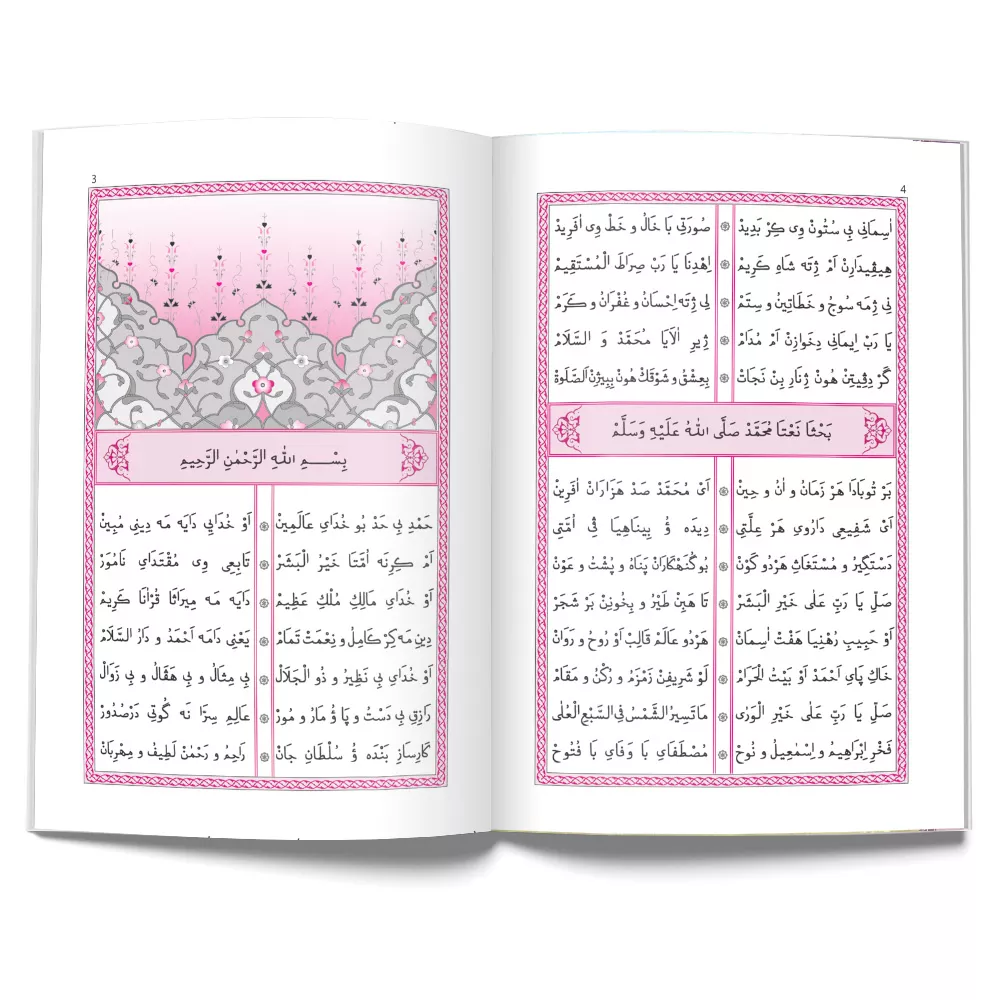 3
بِسْـــمِ اللهِ الرَّحْمٰنِ الرَّحِيمِ
حَمْدِ بِي حَدْ بُو خُدَايِ عَالَمِينْ ۞ اَوْ خُدَايِ دَايَه مَه دِينِ مُبِينْ
اَمْ كِرِنَه اُمَّتَا خَيْرُ الْبَشَرْ ۞ تَابِعِي وِي مُقْتَدَايِ نَامُوَرْ
اَوْ خُدَايِ مَالِكِ مُلْكِ عَظِيمْ ۞ دَايَه مَه مِيرَاثَا قُرْاٰنَا كَرِيمْ
دِينِ مَه كِرْ كَامِلْ و نِعْمَتْ تَمَامْ ۞ يَعْنِي دَامَه اَحْمَدْ و دَارُ السَّلَامْ
اَوْ خُدَايِ بِي نَظِيرُ و ذُو الْجَلَالْ ۞ بِي مِثَالُ و بِي هَڤَالُ و بِي زَوَالْ
رَازِقِي بِي دَسْتُ و پَا ؤُ مَارُ و مُورْ ۞ عَالِمِ سِرَّا نَه كُوتِي دَرْصُدُورْ
كَارْسَازِ بَنْدَه ؤُ سُلْطَانِ جَانْ ۞ رَاحِمُ و رَحْمٰنْ لَطِيفُ و مِهْرِبَانْ
4
اٰسِمَانِي بِي سُتُونْ وِي كِرْ بَدِيدْ ۞ صُورَتِي بَا خَالُ و خَطْ وِي اٰفَرِيدْ
هِيڤِيدَارِنْ اَمْ ژِتَه شَاهِ كَرِيمْ ۞ اِهْدِنَا يَا رَبْ صِرَاطَ الْمُسْتَقِيمْ
نِي ژِمَه سُوجُ و خَطَاتِينُ و سِتَمْ ۞ لِي ژِتَه اِحْسَانُ و غُفْرَانُ و كَرَمْ
يَا رَبْ اِيمَانِي دِخوَازِنْ اَمْ مُدَامْ ۞ ژِبِرِ اٰلَايَا مُحَمَّدْ وَ السَّلَامْ
گَرْ دِڤِيتِنْ هُونْ ژِنَارِ بِنْ نَجَاتْ ۞ بِعِشْقُ و شَوْقَكْ هُونْ بِبِيژِنْ اَلصَّلَوةْ
بَحْثَا نَعْتَا مُحَمَّدْ صَلَّى اللهُ عَلَيْهِ وَسَلَّمْ
بَرْ تُوبَادَا هَرْ زَمَانُ و اٰنُ و حِينْ ۞ اَىْ مُحَمَّدْ صَدْ هَزَارَانْ اٰفَرِينْ
اَىْ شَفِيعِي دَارُوىِ هَرْ عِلَّتِي ۞ دِيدَه ؤُ بِينَاهِيَا ڤِي اُمَّتِي
دَسْتَگِيرُ و مُسْتَغَاثِ هَرْدُو كَوْنْ ۞ بُو گُنَهْكَارَانْ پَنَاهُ و پُشْتُ و عَوْنْ
صَلِّ يَا رَبِّ عَلٰى خَيْرِ الْبَشَرْ ۞ تَا هَبِنْ طَيْرُ و بِخُونِنْ بَرْ شَجَرْ
اَوْ حَبِيبِ رُهْنِيَا هَفْتْ اٰسِمَانْ ۞ هَرْدُو عَالَمْ قَالِبْ اَوْ رُوحُ و رَوَانْ
خَاكِ پَاىِ اَحْمَدْ اَوْ بَيْتُ الْحَرَامْ ۞ لَوْ شَرِيفِنْ زَمْزَمُ و رُكْنُ و مَقَامْ
صَلِّ يَا رَبِّ عَلٰى خَيْرِ الْوَرٰى ۞ مَا تَسِيرُ الشَّمْسُ فِي السَّبْعِ الْعُلٰى
فَخْرِ اِبْرَاهِيمُ و اِسْمٰعِيلُ و نُوحْ ۞ مُصْطَفَاىِ بَا وَفَاىِ بَا فُتُوحْ